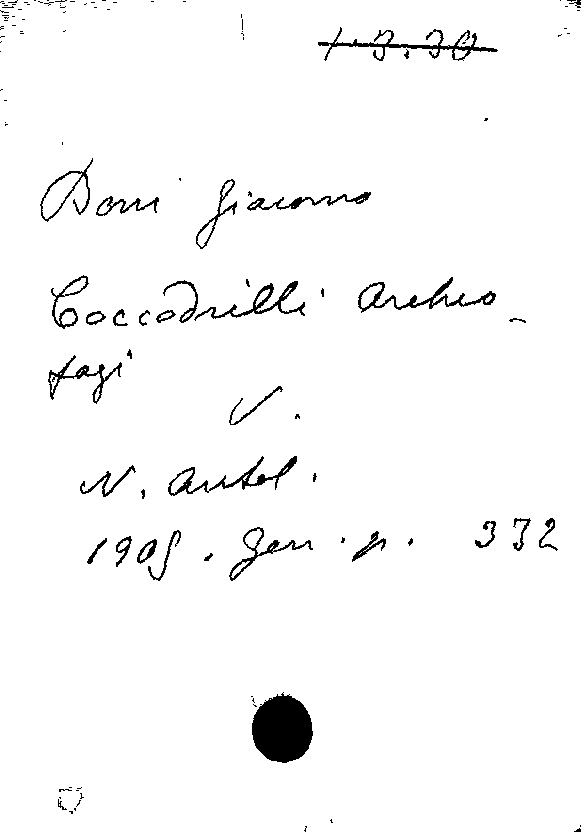 1.3.30
Boni Giacomo
Coccodrilli Archeo-
fagi
V.
N. Antol.
1905. Gen. p. 332